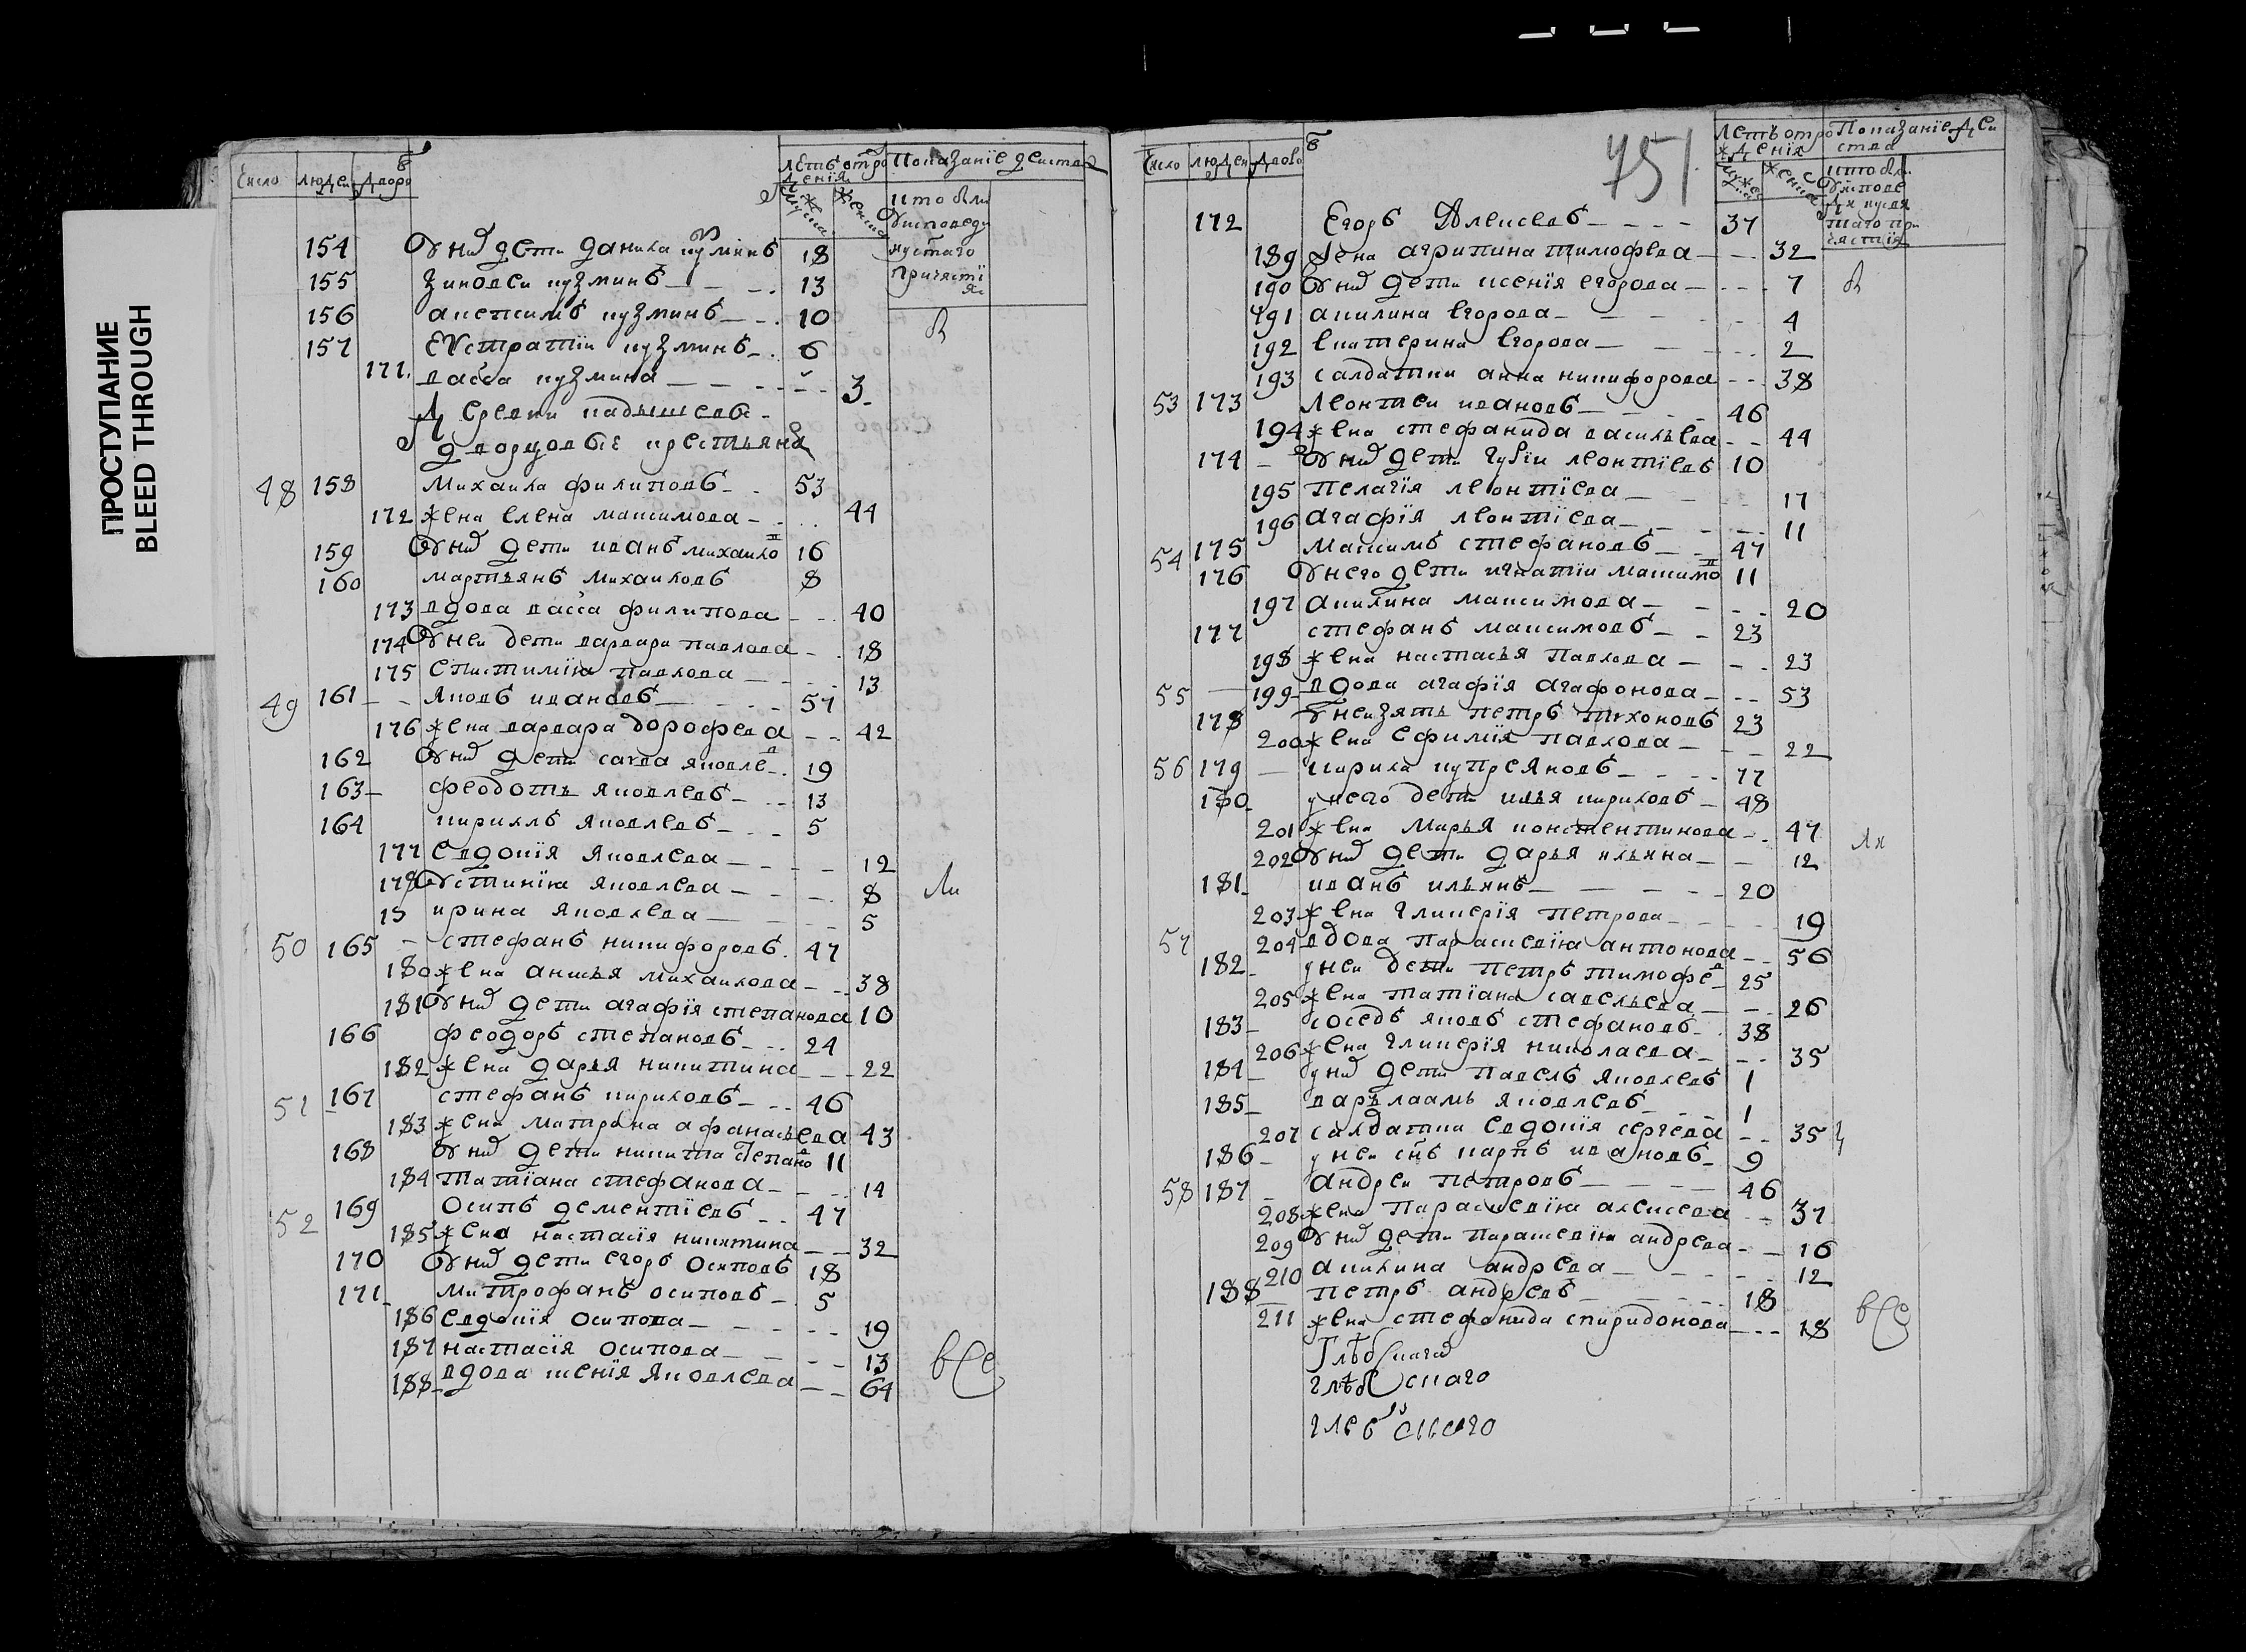 ПРОСТУПАНИЕ
BLEED THROUGH
Число людей дворо
летъ отро Показанїе действ
дения
мужеска женска что были
Уисповеди
154 Уних дети данила кузминъ 18 иустаго
155 зиновеи кузминъ 13 причасти я
156 анисимъ кузминъ 10
157 Еѵстратїи кузминъ 6 в
171 васса кузмина 3
Деревни
дворцовые крестьяна
48 158 Михаила филиповъ 53
172 жена елена максимова 44
159 Уних дети иванъ михаило 16
160 мартьянъ михаиловъ 8
173 вдова васса филипова 40
174 Унеи дети варвара павлова 18
175 Епистимїя павлова 13
49 161 яковъ ивановъ 57
176 жена варвара дорофева 42
162 Уних дети савва яковле 19
163 феодотъ яковлевъ 13
164 кирилъ яковлевъ 5
177 Евдокїя яковлева 12
178 Устинїя яковлева 8 Ли
ирина яковлева 5
50 165 стефанъ никифоровъ 47
180 жена анисья михаилова 38
181 Уних дети агафїя степанова 10
166 феодоръ степановъ 24
182 жена дарья никитина 22
51 167 стефанъ кириловъ 46
183 жена матрона афанасьева 43
168 Уних дети никита степано 11
184 татїана стефанова 14
52 169 Осипъ дементїевъ 47
185 жена настасїя никитина 32
170 Уних дети егоръ осиповъ 18
171 митрофанъ осиповъ 5
186 Евдокїя осипова 19
187 настасїя осипова 13 все
188 вдова ксенїя яковлева 64
751
Число людеи дворо
летъ отро Показанїе деи
ждения ства
мужеска женска что бы
Уисповеди
172 Егоръ Алексевъ 37
189 жена агрипина тимофева 32
190 Уних дети ксенїя егорова 7 в
191 акилина егорова 4
192 екатерина егорова 2
193 салдатки анна никифорова 38
53 173 леонтеи ивановъ 46
194 жена стефанида васильева 44
174 Уних дети гурїи леонтїевъ 10
195 пелагїя леонтїева 17
196 агафїя леонтїева 11
54 175 максимъ стефановъ 47
176 Унего дети игнатїи максимо 11
197 акилина максимова 20
177 стефанъ максимовъ 23
198 жена настасья павлова 23
55 199 вдова агафїя агафонова 53
178 унеи зять петръ тихоновъ 23
200 жена ефимїя павлова 22
56 179 кирила купреяновъ 77
180 унего дети илья кириловъ 48
201 жена марья констентинова 47 Ли
202 Уних дети дарья ильина 12
181 иванъ ильинъ 20
203 жена гликерїя петрова 19
57 204 вдова параскевїя антонова 56
182 унеи дети петръ тимофе 25
205 жена татїана савельева 26
183 соседъ яковъ стефановъ 38
206 жена гликерїя николаева 35
184 уних дети павелъ яковлевъ 1
185 варълаамъ яковлевъ 1
207 салдатки евдокїя сергева 35
186 унеи снъ карпъ ивановъ 9
58 187 андреи петровъ 46
208 жена параскевїя алексева 37
209 Уних дети параскевїя андрева 16
210 акилина андрева 12
188 петръ андревъ 18
211 жена стефанида спиридонова 18 все